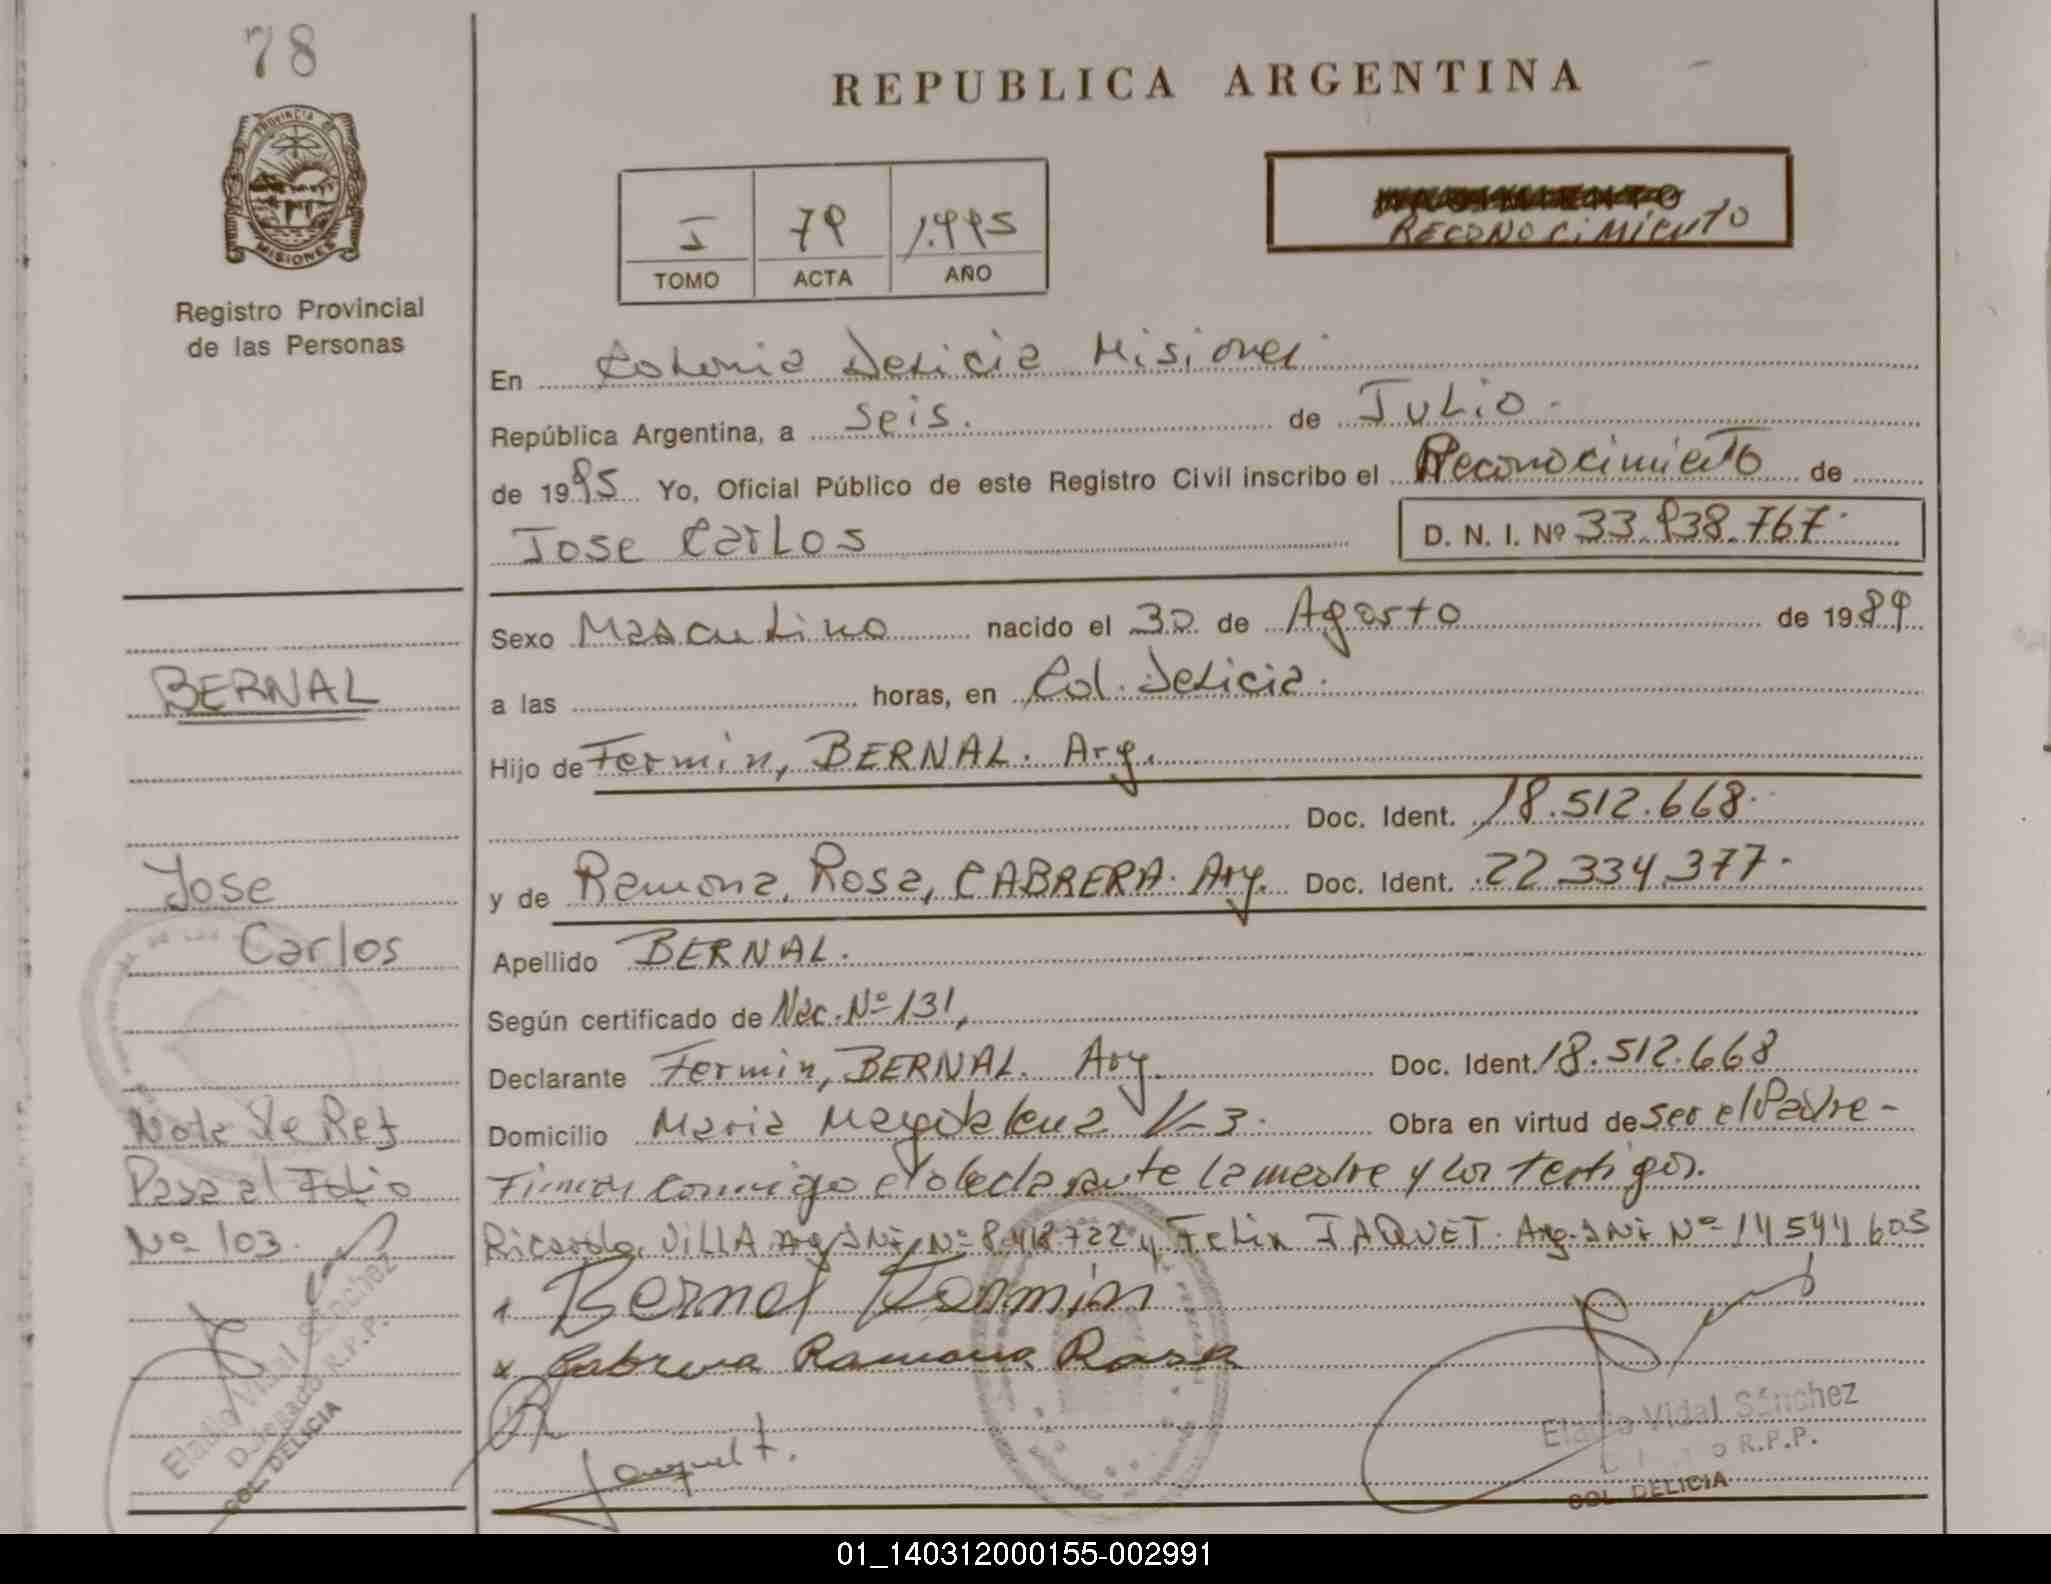 78
PROVINCIA DE
MISIONES
Registro Provincial
de las Personas
REPUBLICA ARGENTINA
I 79 1.995
TOMO ACTA AÑO
RECONOCIMIENTO
En Colonia Delicia Misiones.
República Argentina, a seis. de Julio.
de 1995 Yo, Oficial Público de este Registro Civil inscribo el Reconocimiento de
Jose Carlos
D. N. I. Nº 33.938.767.
Sexo Masculino nacido el 30 de Agosto de 1989
a las horas, en Col. Delicia.
Hijo de Fermin, BERNAL. Arg.
Doc. Ident. 18.512.668.
y de Ramona, Rosa, CABRERA. Arg. Doc. Ident. 22.334.377.
Apellido BERNAL.
Según certificado de Nac. Nº 131,
Declarante Fermin, BERNAL. Arg. Doc. Ident. 18.512.668
Domicilio Maria Magdalena Obra en virtud de ser el Padre-
Firman conmigo el declarante la madre y los testigos.
Ricardo, VILLA Arg DNI Nº y Felix JAQUET. Arg. DNI Nº 14 544 603
Bernal Fermin
x Cabrera Ramona Rosa
Jaquet F.
Eladio Vidal Sánchez
R.P.P.
COL. DELICIA
BERNAL
Jose
Carlos
Nota de Ref
Pasa al Folio
Nº 103.
Eladio Vidal Sánchez
Delegado R.P.P.
COL. DELICIA
01_140312000155-002991